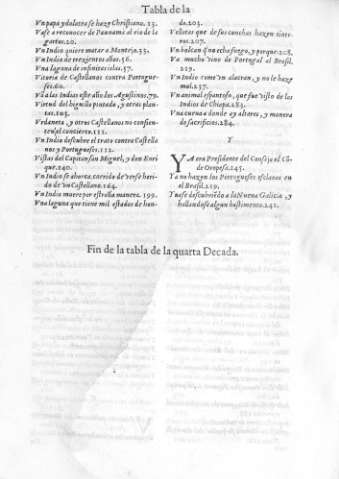 Tabla de la
Vn papa ydolatra se haze Christiano. 13.
Vase a reconocer de Panamà al rio de la
gartos. 20.
Vn Indio quiere matar a Montejo. 33.
Vn Indio de trezientos años. 56.
Vna laguna de infinitas islas. 57.
Vitoria de Castellanos contra Portugue-
ses. 60.
Va a las Indias este año dos Agustinos. 79.
Virtud del biguillo pintada, y otras plan-
tas. 105.
Vedaneta, y otros Castellanos no consien-
ten el concierto. 111.
Vn Indio descubre el trato contra Castella
nos y Portugueses. 112.
Vistas del Capitan san Miguel, y don Enri
que. 240.
Vn Indio se ahorca corrido de verse heri-
do de vn Castellano. 164.
Vn Indio muere por estraña manera. 199.
Vna laguna que tiene mil estados de hon-
do. 203.
Vellotas que de sus conchas hazen tinte-
ros. 207.
Vn balcan que echa fuego, y porque. 208.
Va mucho vino de Portugal al Brasil.
229.
Vn Indio come vn alacran, y no le haze
mal. 237.
Vn animal espantoso, que fue visto de los
Indios de Chiapa. 283.
Vna cueua donde ay altares, y manera
de sacrificios. 284.
Y
YA era Presidente del Consejo el Cō
de Oropesa. 245.
Ya no hazen los Portugueses esclauos en
el Brasil. 219.
Yuase descubriēdo la Nueua Galicia, y
hallauase algun bastimento. 241.
Fin de la tabla de la quarta Decada.